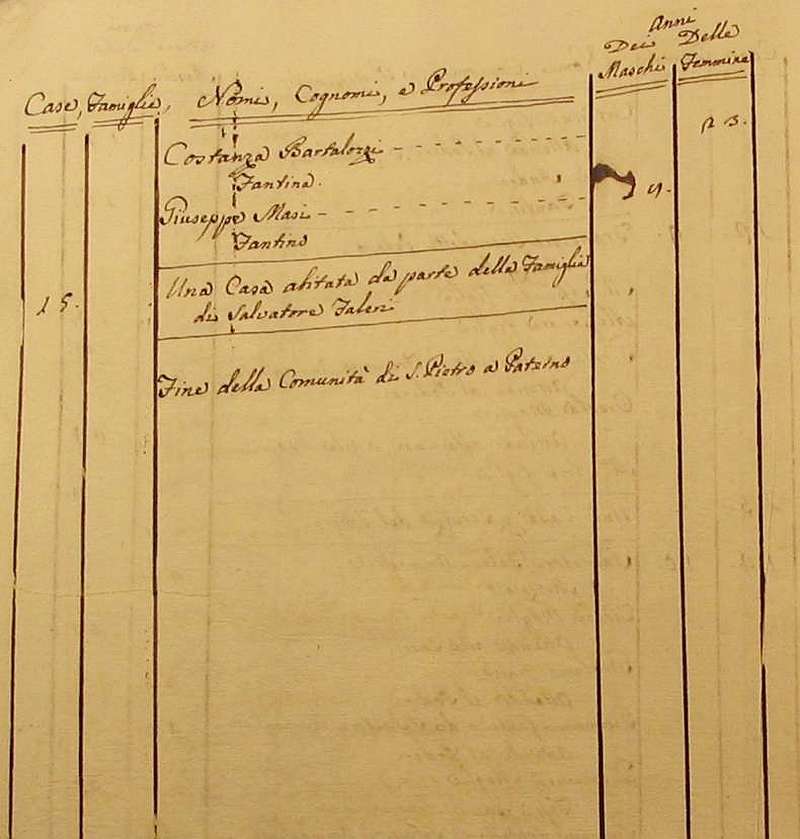 Anni
Dei Delle
Case, Famiglie, Nomi, Cognomi, e Professioni Maschi Femmine
Costanza Bartalozzi 23.
Fantina.
Giuseppe Masi 9.
Fantino
Una Casa abitata da parte della Famiglia
15. di Salvatore Faleri
Fine della Comunità di S. Pietro a Paterno